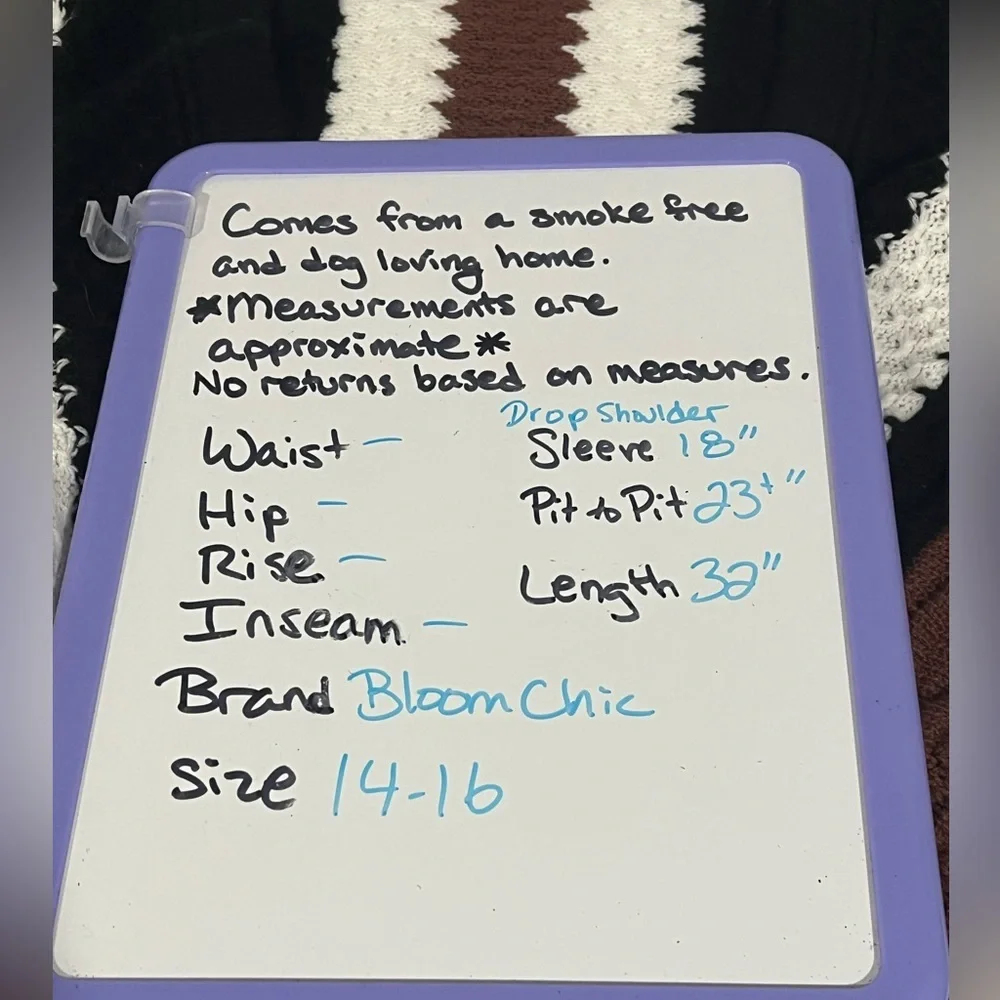 Comes from a smoke free
and dog loving home.
*Measurements are
approximate*
No returns based on measures.
Waist –
Hip –
Rise –
Inseam –
Drop Shoulder
Sleeve 18"
Pit to Pit 23+"
Length 32"
Brand BloomChic
Size 14-16